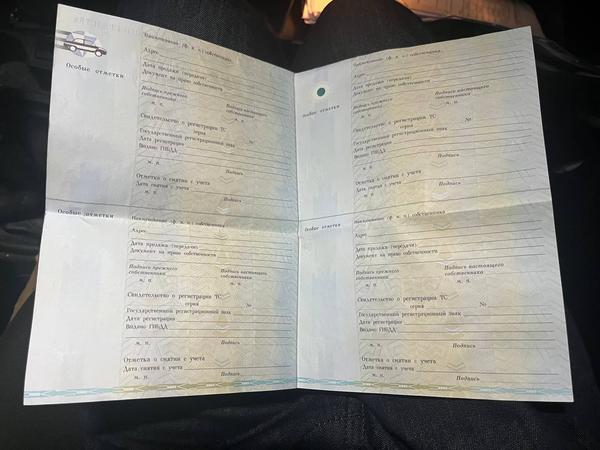 Особые отметки
Наименование (ф. и. о.) собственника
Адрес
Дата продажи (передачи)
Документ на право собственности
Подпись прежнего собственника
Подпись настоящего собственника
м. п.
м. п.
Свидетельство о регистрации ТС
серия
№
Государственный регистрационный знак
Дата регистрации
Выдано ГИБДД
м. п.
Подпись
Отметка о снятии с учета
Дата снятия с учета
м. п.
Подпись
Особые отметки
Наименование (ф. и. о.) собственника
Адрес
Дата продажи (передачи)
Документ на право собственности
Подпись прежнего
собственника
Подпись настоящего
собственника
м. п.
м. п.
Свидетельство о регистрации ТС
серия
№
Государственный регистрационный знак
Дата регистрации
Выдано ГИБДД
м. п.
Подпись
Отметка о снятии с учета
Дата снятия с учета
м. п.
Подпись
Особые отметки
Наименование (ф. и. о.) собственника
Адрес
Дата продажи (передачи)
Документ на право собственности
Подпись прежнего
собственника
Подпись настоящего
собственника
м. п.
м. п.
Свидетельство о регистрации ТС
серия
№
Государственный регистрационный знак
Дата регистрации
Выдано ГИБДД
м. п.
Подпись
Отметка о снятии с учета
Дата снятия с учета
м. п.
Подпись
Особые отметки
Наименование (ф. и. о.) собственника
Адрес
Дата продажи (передачи)
Документ на право собственности
Подпись прежнего
собственника
Подпись настоящего
собственника
м. п.
м. п.
Свидетельство о регистрации ТС
серия
№
Государственный регистрационный знак
Дата регистрации
Выдано ГИБДД
м. п.
Подпись
Отметка о снятии с учета
Дата снятия с учета
м. п.
Подпись